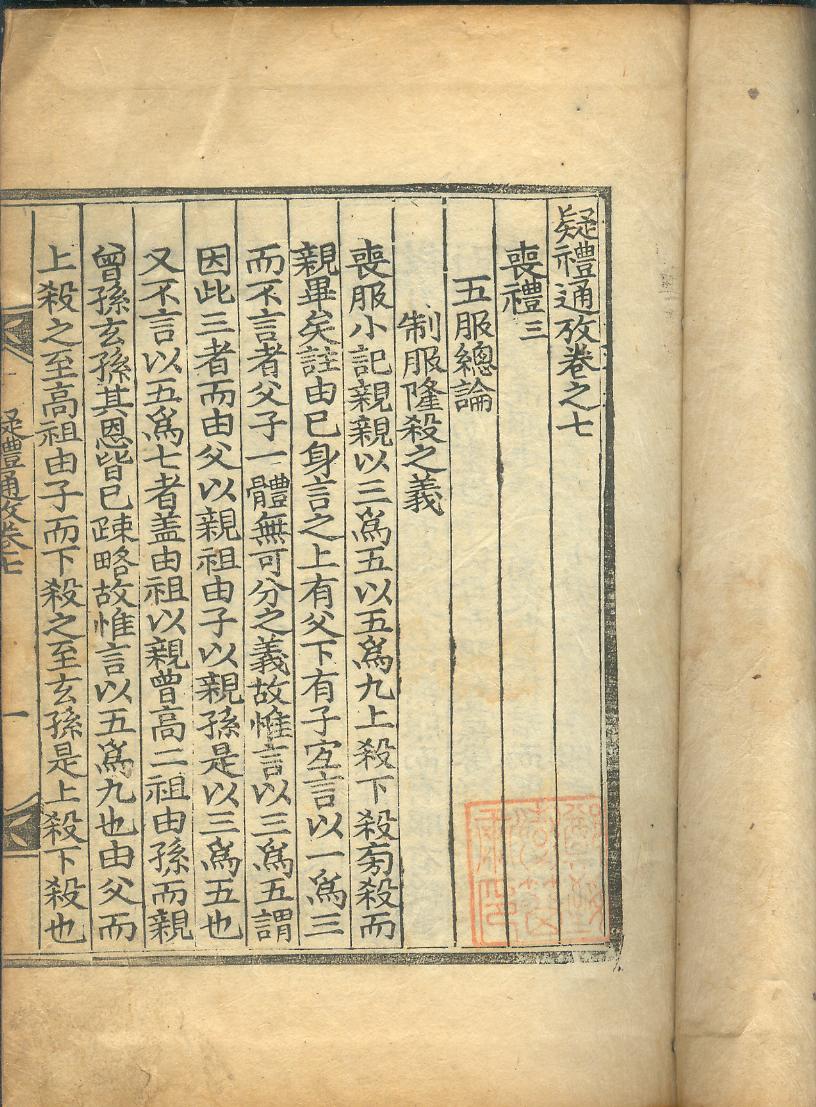 疑禮通攷卷之七
喪禮三
五服總論
制服隆殺之義
喪服小記親親以三爲五以五爲九上殺下殺旁殺而
親畢矣註由已身言之上有父下有子宜言以一爲三
而不言者父子一體無可分之義故惟言以三爲五謂
因此三者而由父以親祖由子以親孫是以三爲五也
又不言以五爲七者盖由祖以親曾高二祖由孫而親
曾孫玄孫其恩皆已疎略故惟言以五爲九也由父而
上殺之至高祖由子而下殺之至玄孫是上殺下殺也
疑禮通攷卷七
一